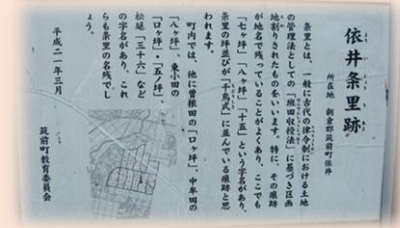 依井条里跡
所在地 朝倉郡筑前町依井
条里とは、一般に古代の律令制における土地
の管理法としての「班田収授法」に基づき区画
地割りされたものをいいます。特に、その痕跡
が地名で残っていることがよくあり、ここでも
「七ヶ坪」「八ヶ坪」「十五」という字名があり、
条里の坪並びが「千鳥式」に並んでいる痕跡と思
われます。
町内では、他に曽根田の「口ヶ坪」、中牟田の
「八ヶ坪」、東小田の
「口ヶ坪」・「五ノ坪」、
松延「三十六」など
の字名があり、これ
らも条里の名残でし
ょう。
平成二一年三月
筑前町教育委員会